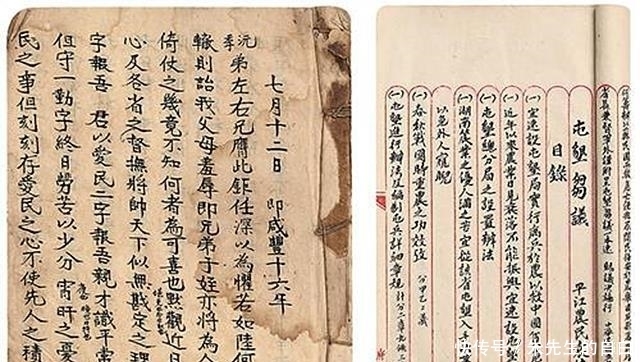 七月十二日 即咸豐十六年
沅季弟左右兄膺此鉅任深以為懼若如陸何
轍則詒我父母羞辱即兄弟子姪亦將為人
倚伏之幾竟不知何者為可喜也默觀近日
心及各省之督撫將帥天下似無戡定之理
字報吾 君以愛民二字報吾親才識平常
但守一勤字終日勞苦以少分 宵旰之憂
民之事但刻刻存愛民之心不使先人之積
屯墾芻議 平江農民
目錄
(一) 宜速設屯墾局實行寓兵於農以救中國
(一) 近年以來農業日見衰落不能振興宜速設
(一) 屯墾總分局之設置辦法
(一) 湖南農業之優人滿之苦宜從該省屯墾入手
以免外人窺覬
(一) 春秋戰國時重農之功效攷 分甲乙二義
(一) 屯墾進行辦法及編制屯兵詳細章規 計分二章九
快传号/朱先生的自白